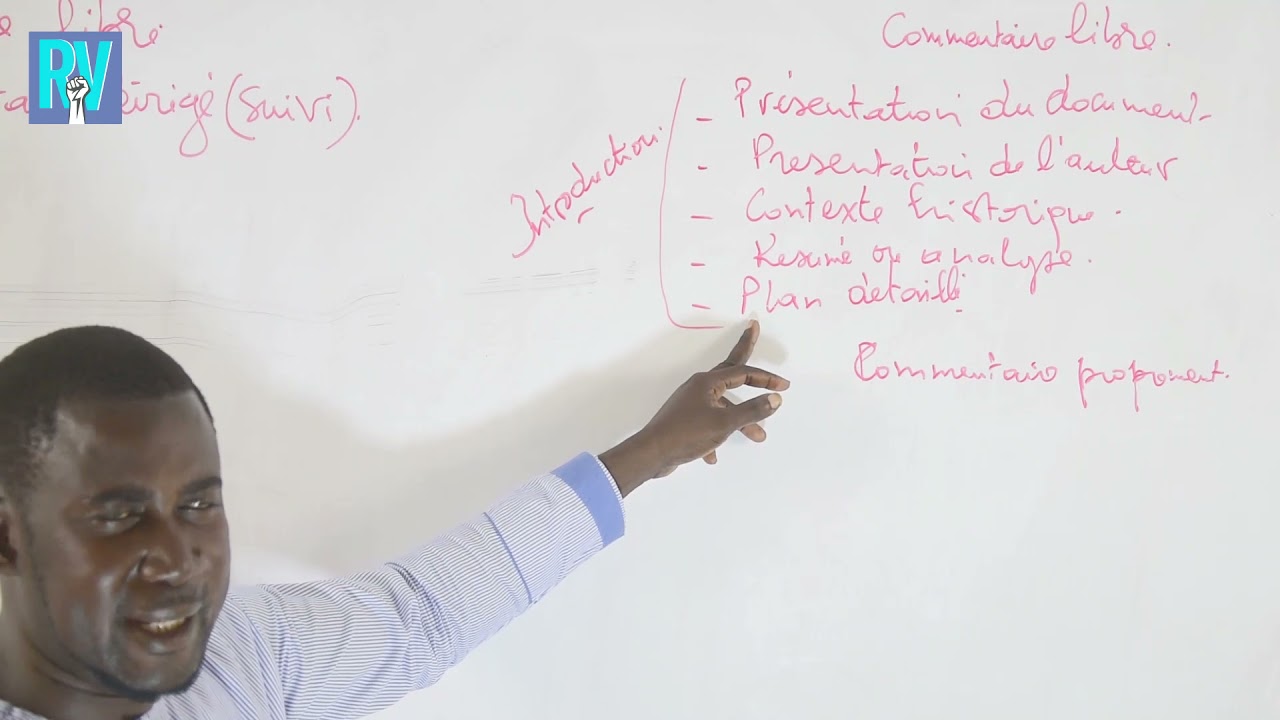 libre
RV
dirigé (suivi).
Commentaire libre.
Introduction
- Présentation du document-
- Presentation de l'auteur
- Contexte historique.
- Resumé ou analyse.
- Plan détaillé
Commentaire proproment.